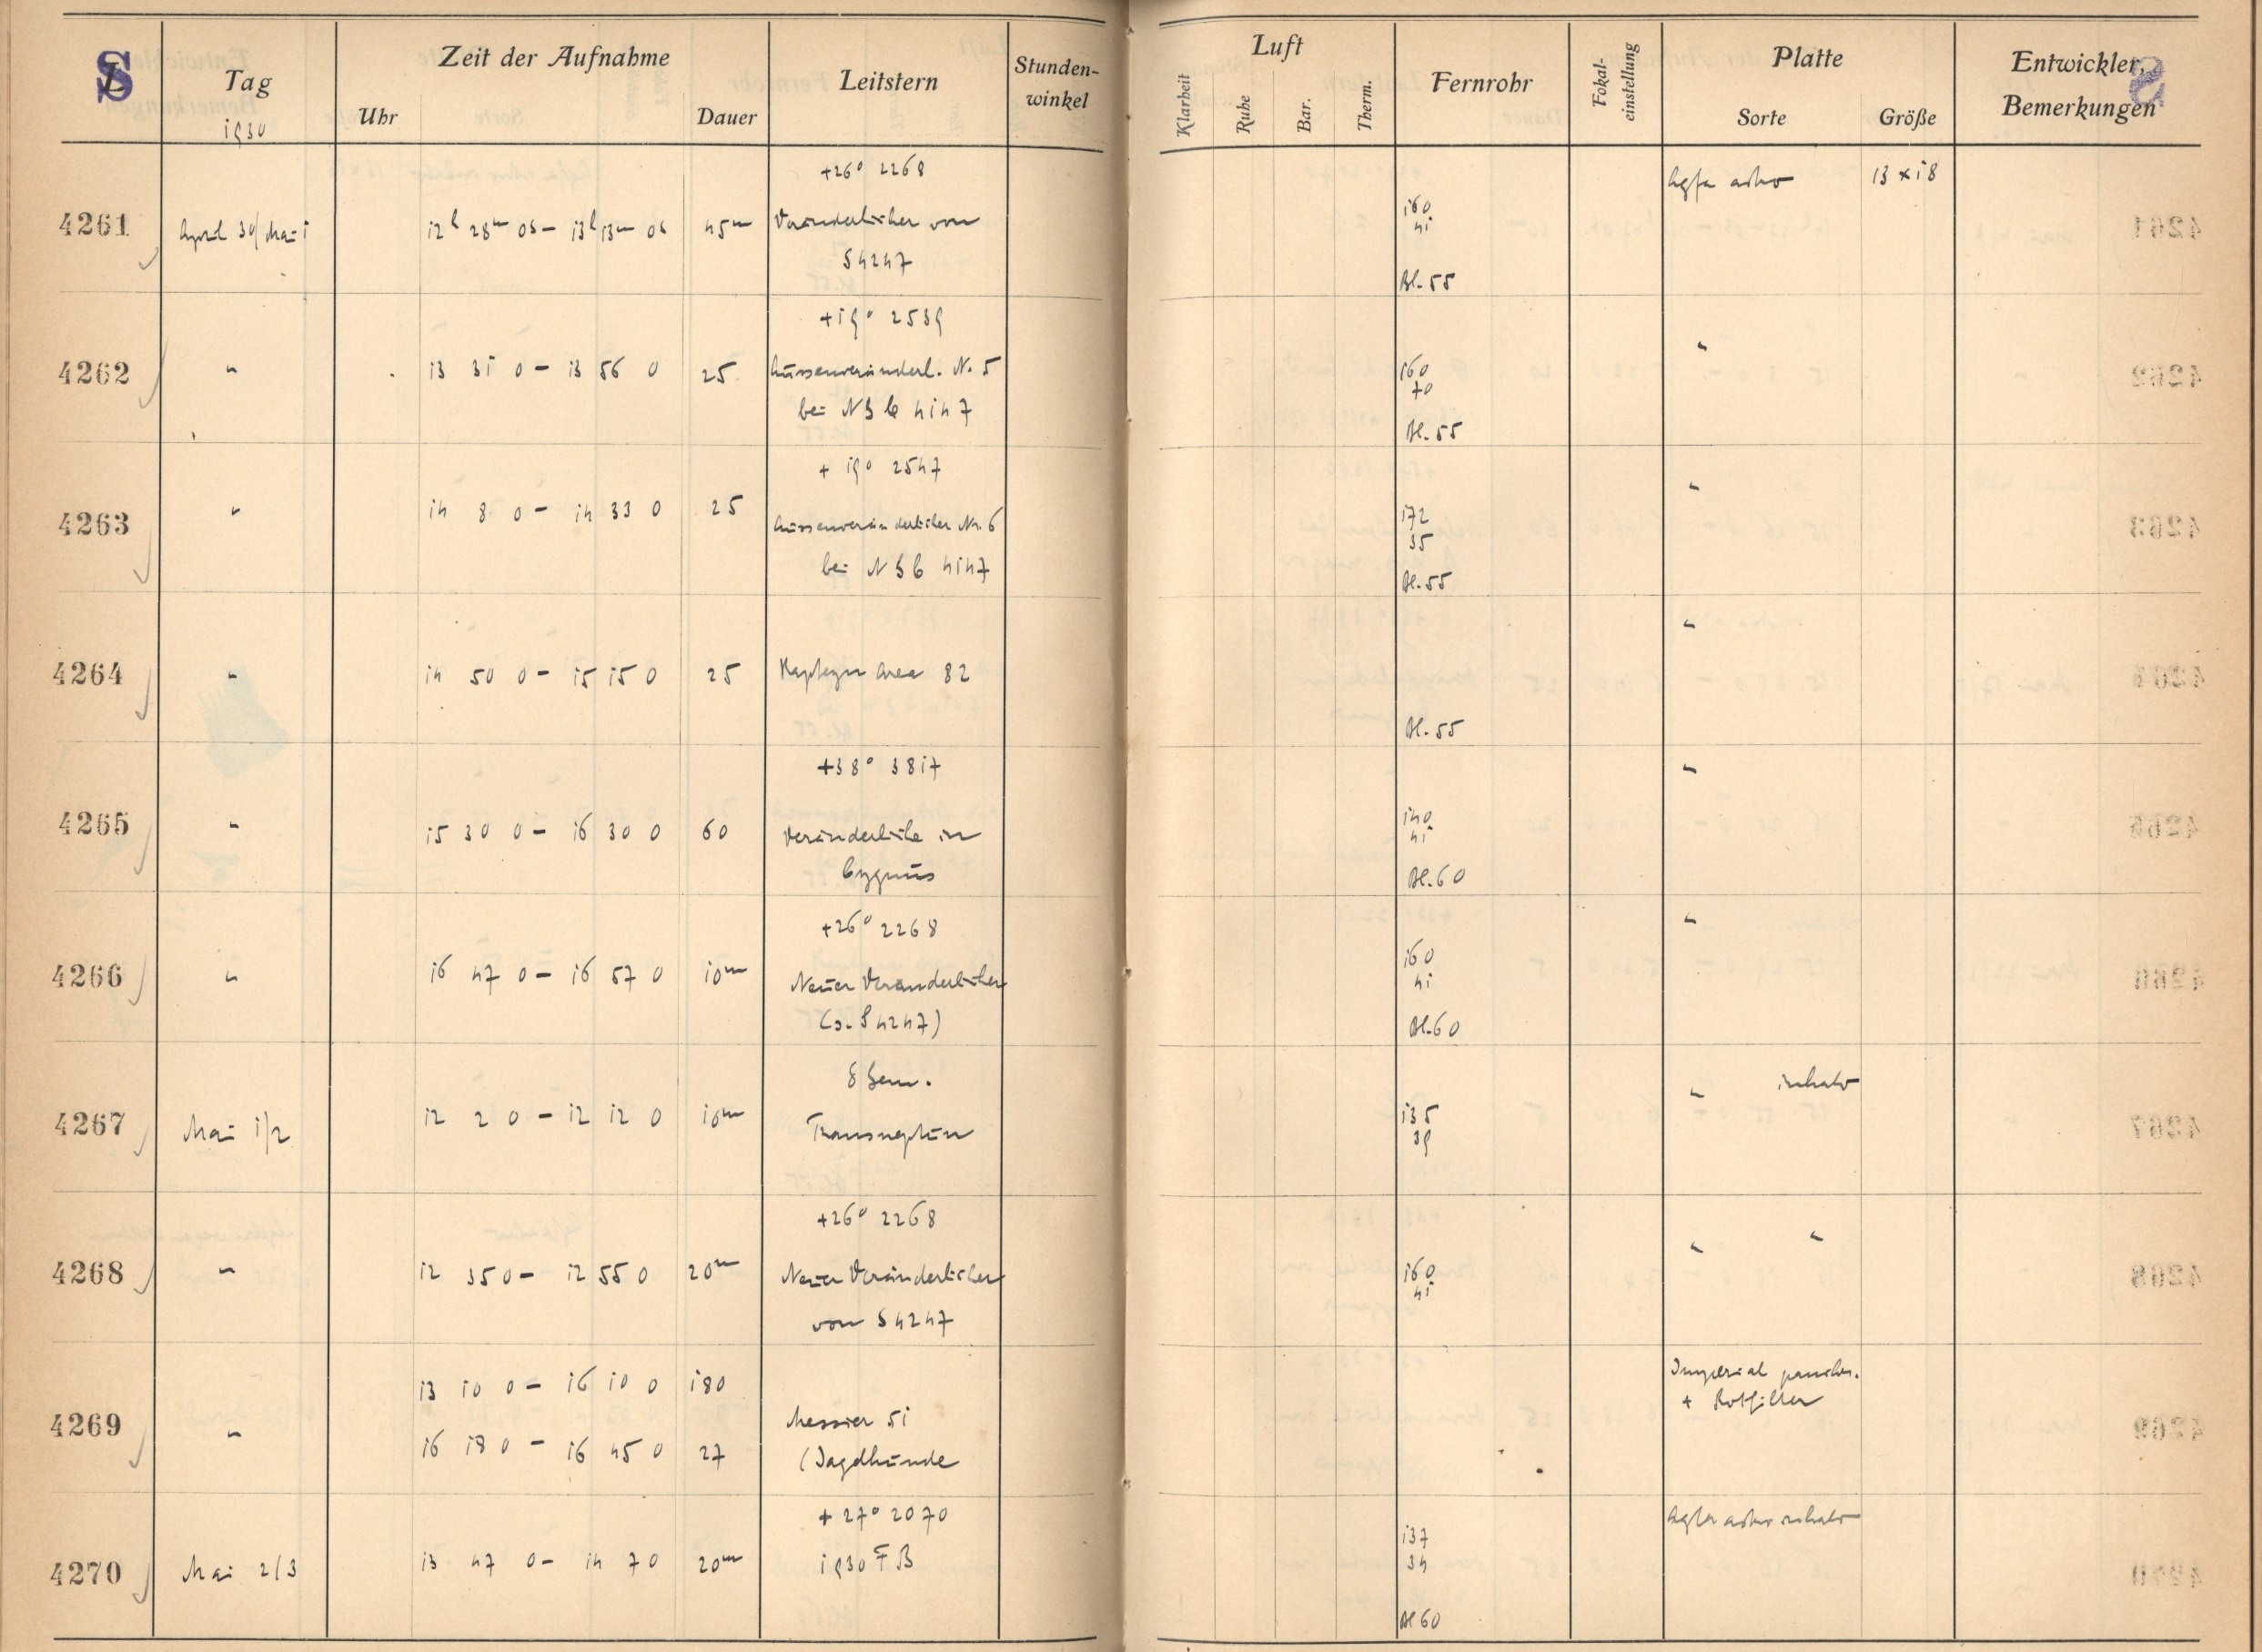 S
Tag
1930
Zeit der Aufnahme
Uhr
Dauer
Leitstern
Stunden-
winkel
Luft
Klarheit
Ruhe
Bar.
Therm.
Fernrohr
Fokal-
einstellung
Platte
Sorte
Größe
Entwickler,
Bemerkungen
4261 April 30/Mai 1 12h 28m 0s – 13h 13m 0s 45m
+26° 2268
Veränderlicher von
S4247
160
41
Bl. 55
Agfa astro 13 x 18
4262 " 13 31 0 – 13 56 0 25
+19° 2539
Aussenveränderl. N. 5
bei NGC 4147
160
70
Bl. 55
"
4263 " 14 8 0 – 14 33 0 25
+ 19° 2547
Aussenveränderlicher Nr. 6
bei NGC 4147
172
35
Bl. 55
"
4264 " 14 50 0 – 15 15 0 25
Kapteyn Area 82
Bl. 55
"
4265 " 15 30 0 – 16 30 0 60
+38° 3817
Veränderliche in
Cygnus
140
41
Bl. 60
"
4266 " 16 47 0 – 16 57 0 10m
+26° 2268
Neuer Veränderlicher
(s. S4247)
160
41
Bl. 60
"
4267 Mai 1/2 12 2 0 – 12 12 0 10m
δ Gem.
Transneptun
135
39
" inhalo
4268 " 12 35 0 – 12 55 0 20m
+26° 2268
Neuer Veränderlicher
von S4247
160
41
" "
4269 "
13 10 0 – 16 10 0 180
16 18 0 – 16 45 0 27
Messier 51
(Jagdhunde
Imperial panchr.
+ Rotfilter
4270 Mai 2/3 13 47 0 – 14 7 0 20m
+ 27° 2070
1930 FB
137
34
Bl 60
Agfa astro inhalo